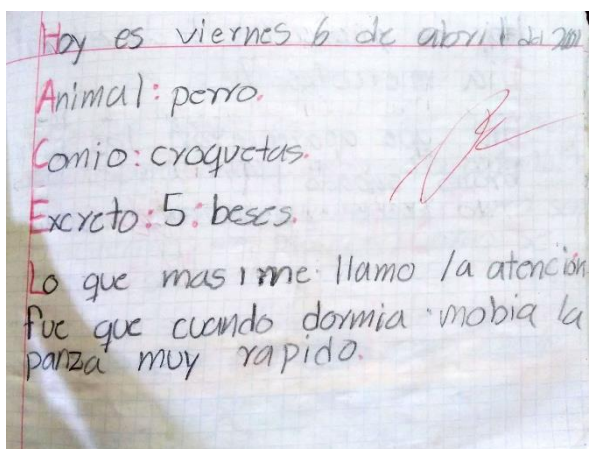 Hoy es viernes 6 de abril del
Animal: perro.
Comio: croquetas.
Excreto: 5: beses.
Lo que mas me llamo la atención
fue que cuando dormia mobia la
panza muy rapido.